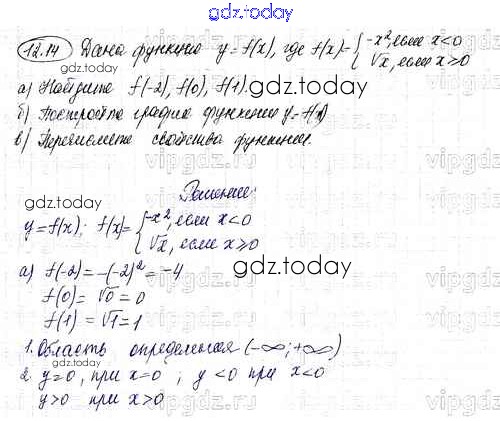 gdz.today
12.14 Дана функция y=f(x), где f(x)={-x², если x<0
√x, если x≥0
gdz.today
а) Найдите f(-2), f(0), f(1).
б) Постройте график функции y=f(x)
в) Перечислите свойства функции.
vipgdz.ru
gdz.today
Решение:
y=f(x); f(x)={-x², если x<0
√x, если x≥0
gdz.today
а) f(-2)=-(-2)²=-4
f(0)=√0=0
f(1)=√1=1
1. Область определения (-∞;+∞)
2. y=0, при x=0 ; y<0 при x<0
y>0 при x>0
gdz.today